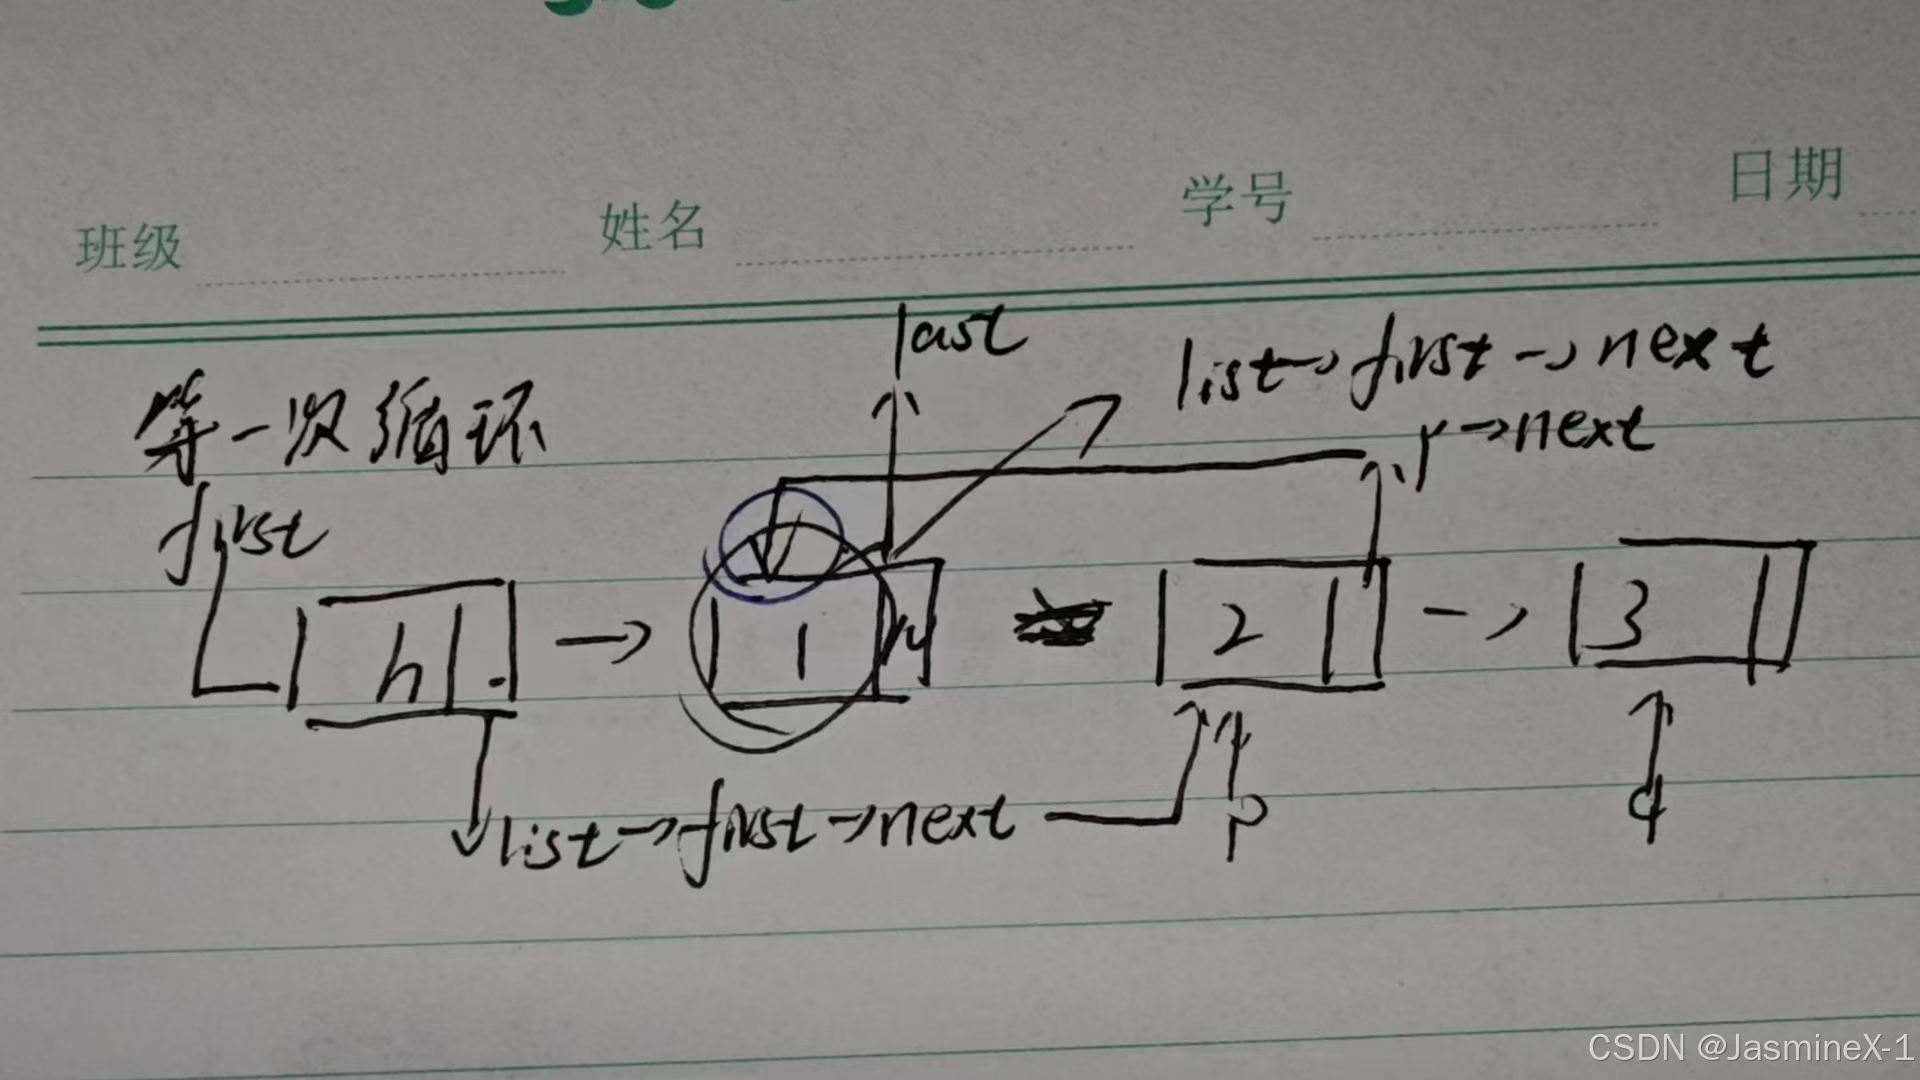 班级 姓名 学号 日期
last
list→first→next
等一次循环
p→next
first
h → 1 N 2 → 3
list→first→next
p
q
CSDN @JasmineX-1